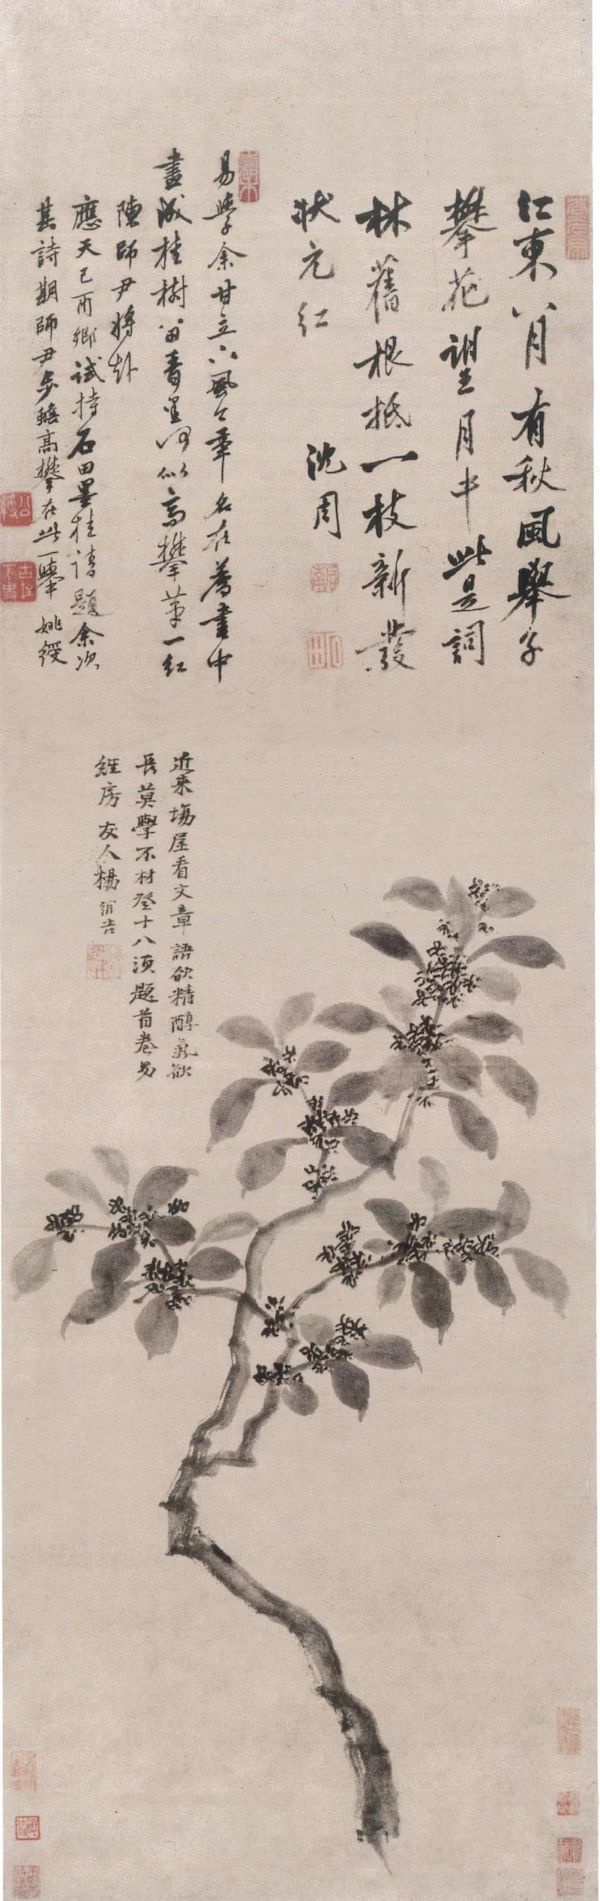 江東八月有秋風舉子
攀花望月中此是詞
林舊根抵一枝新發
狀元紅
沈周
易學余甘立下風今年名在薦書中
畫成桂樹留香里何似高攀第一紅
陳師尹將赴
應天己酉鄉試持石田墨桂請題余次
其詩期師尹步蟾高攀在此一舉 姚綬
近來場屋看文章語欲精醇氣欲
長莫學不材登十八須題首卷易
經房 友人楊